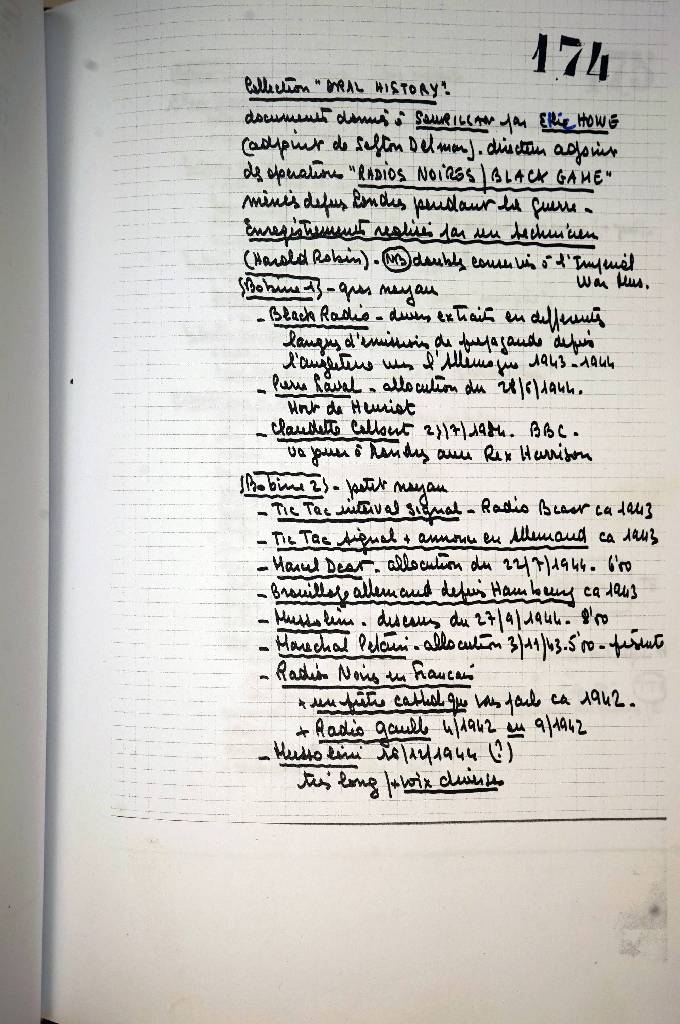 174
Collection "ORAL HISTORY".
documents donnés à SOUPILLAN par Ellic HOWE
(adjoint de Sefton Delmer). directeur adjoint
des opérations "RADIOS NOIRES / BLACK GAME"
menées depuis Londres pendant la guerre -
Enregistrements réalisés par un technicien
(Harold Robin) - NB doubles conservés à l'Imperial
War Mus.
{Bobine 1} - gros noyau
- Black Radio - divers extraits en différentes
langues d'émissions de propagande depuis
l'Angleterre vers l'Allemagne 1943-1944
- Pierre Laval - allocution du 28/6/1944.
Mort de Henriot
- Claudette Colbert 23/7/1984. BBC.
va jouer à Londres avec Rex Harrison
{Bobine 2} - petit noyau
- Tic Tac interval signal - Radio ca 1943
- Tic Tac signal + annonce en Allemand ca 1943
- Marcel Deat - allocution du 22/7/1944 - 6'00
- Brouillage allemand depuis Hambourg ca 1943
- Mussolini - discours du 27/9/1944 - 8'00
- Maréchal Pétain - allocution 3/11/43 - 5'00 -
- Radios Noires en Francais
+ un prêtre catholique vous parle ca 1942.
+ Radio Gaulle 4/1942 au 9/1942
- Mussolini 16/12/1944 (?)
très long / + voix diverses